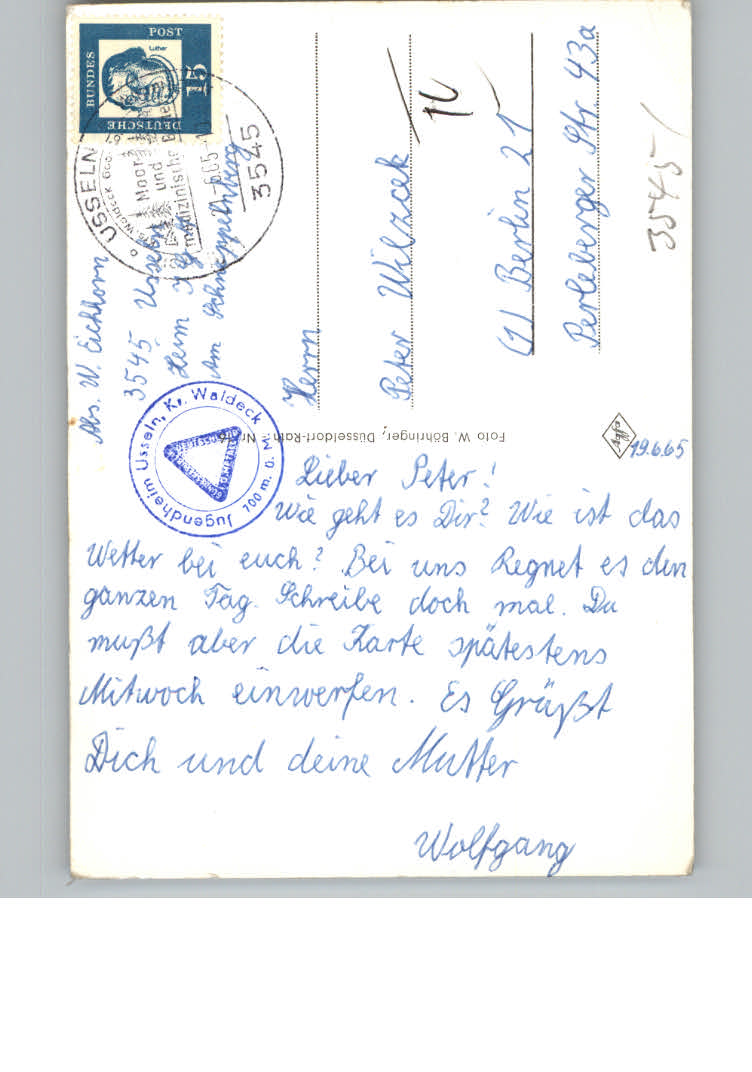 DEUTSCHE
BUNDES
POST
Luther
15
USSELN
Moor
und
medizinische
3545
Abs. W. Eichhorn
3545 Usseln
Heim
Am Schneppelnberg
Herrn
Peter Wilzcek
(1) Berlin 21
Perleberger Str. 43a
3545
Jugendheim Usseln, Kr. Waldeck
700 m. ü. M.
Foto W. Böhringer, Düsseldorf-Rath
Agfa
19.6.65
Lieber Peter!
Wie geht es Dir? Wie ist das
Wetter bei euch? Bei uns Regnet es den
ganzen Tag. Schreibe doch mal. Du
mußt aber die Karte spätestens
Mitwoch einwerfen. Es Grüßt
Dich und deine Mutter
Wolfgang